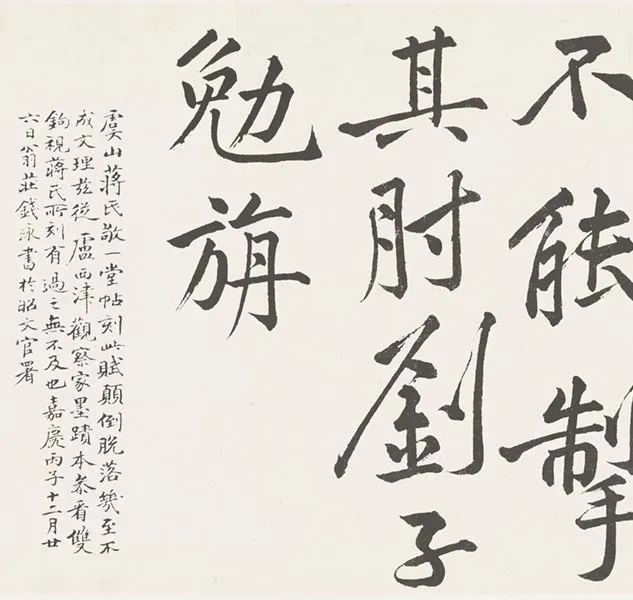 不能掣
其肘劉子
勉旃
虞山蔣氏敬一堂帖刻此賦顛倒脫落幾至不
成文理茲從盧西津觀察家墨蹟本叅看雙
鉤視蔣氏所刻有過之無不及也嘉慶丙子十二月廿
六日翁莊錢泳書於昭文官署